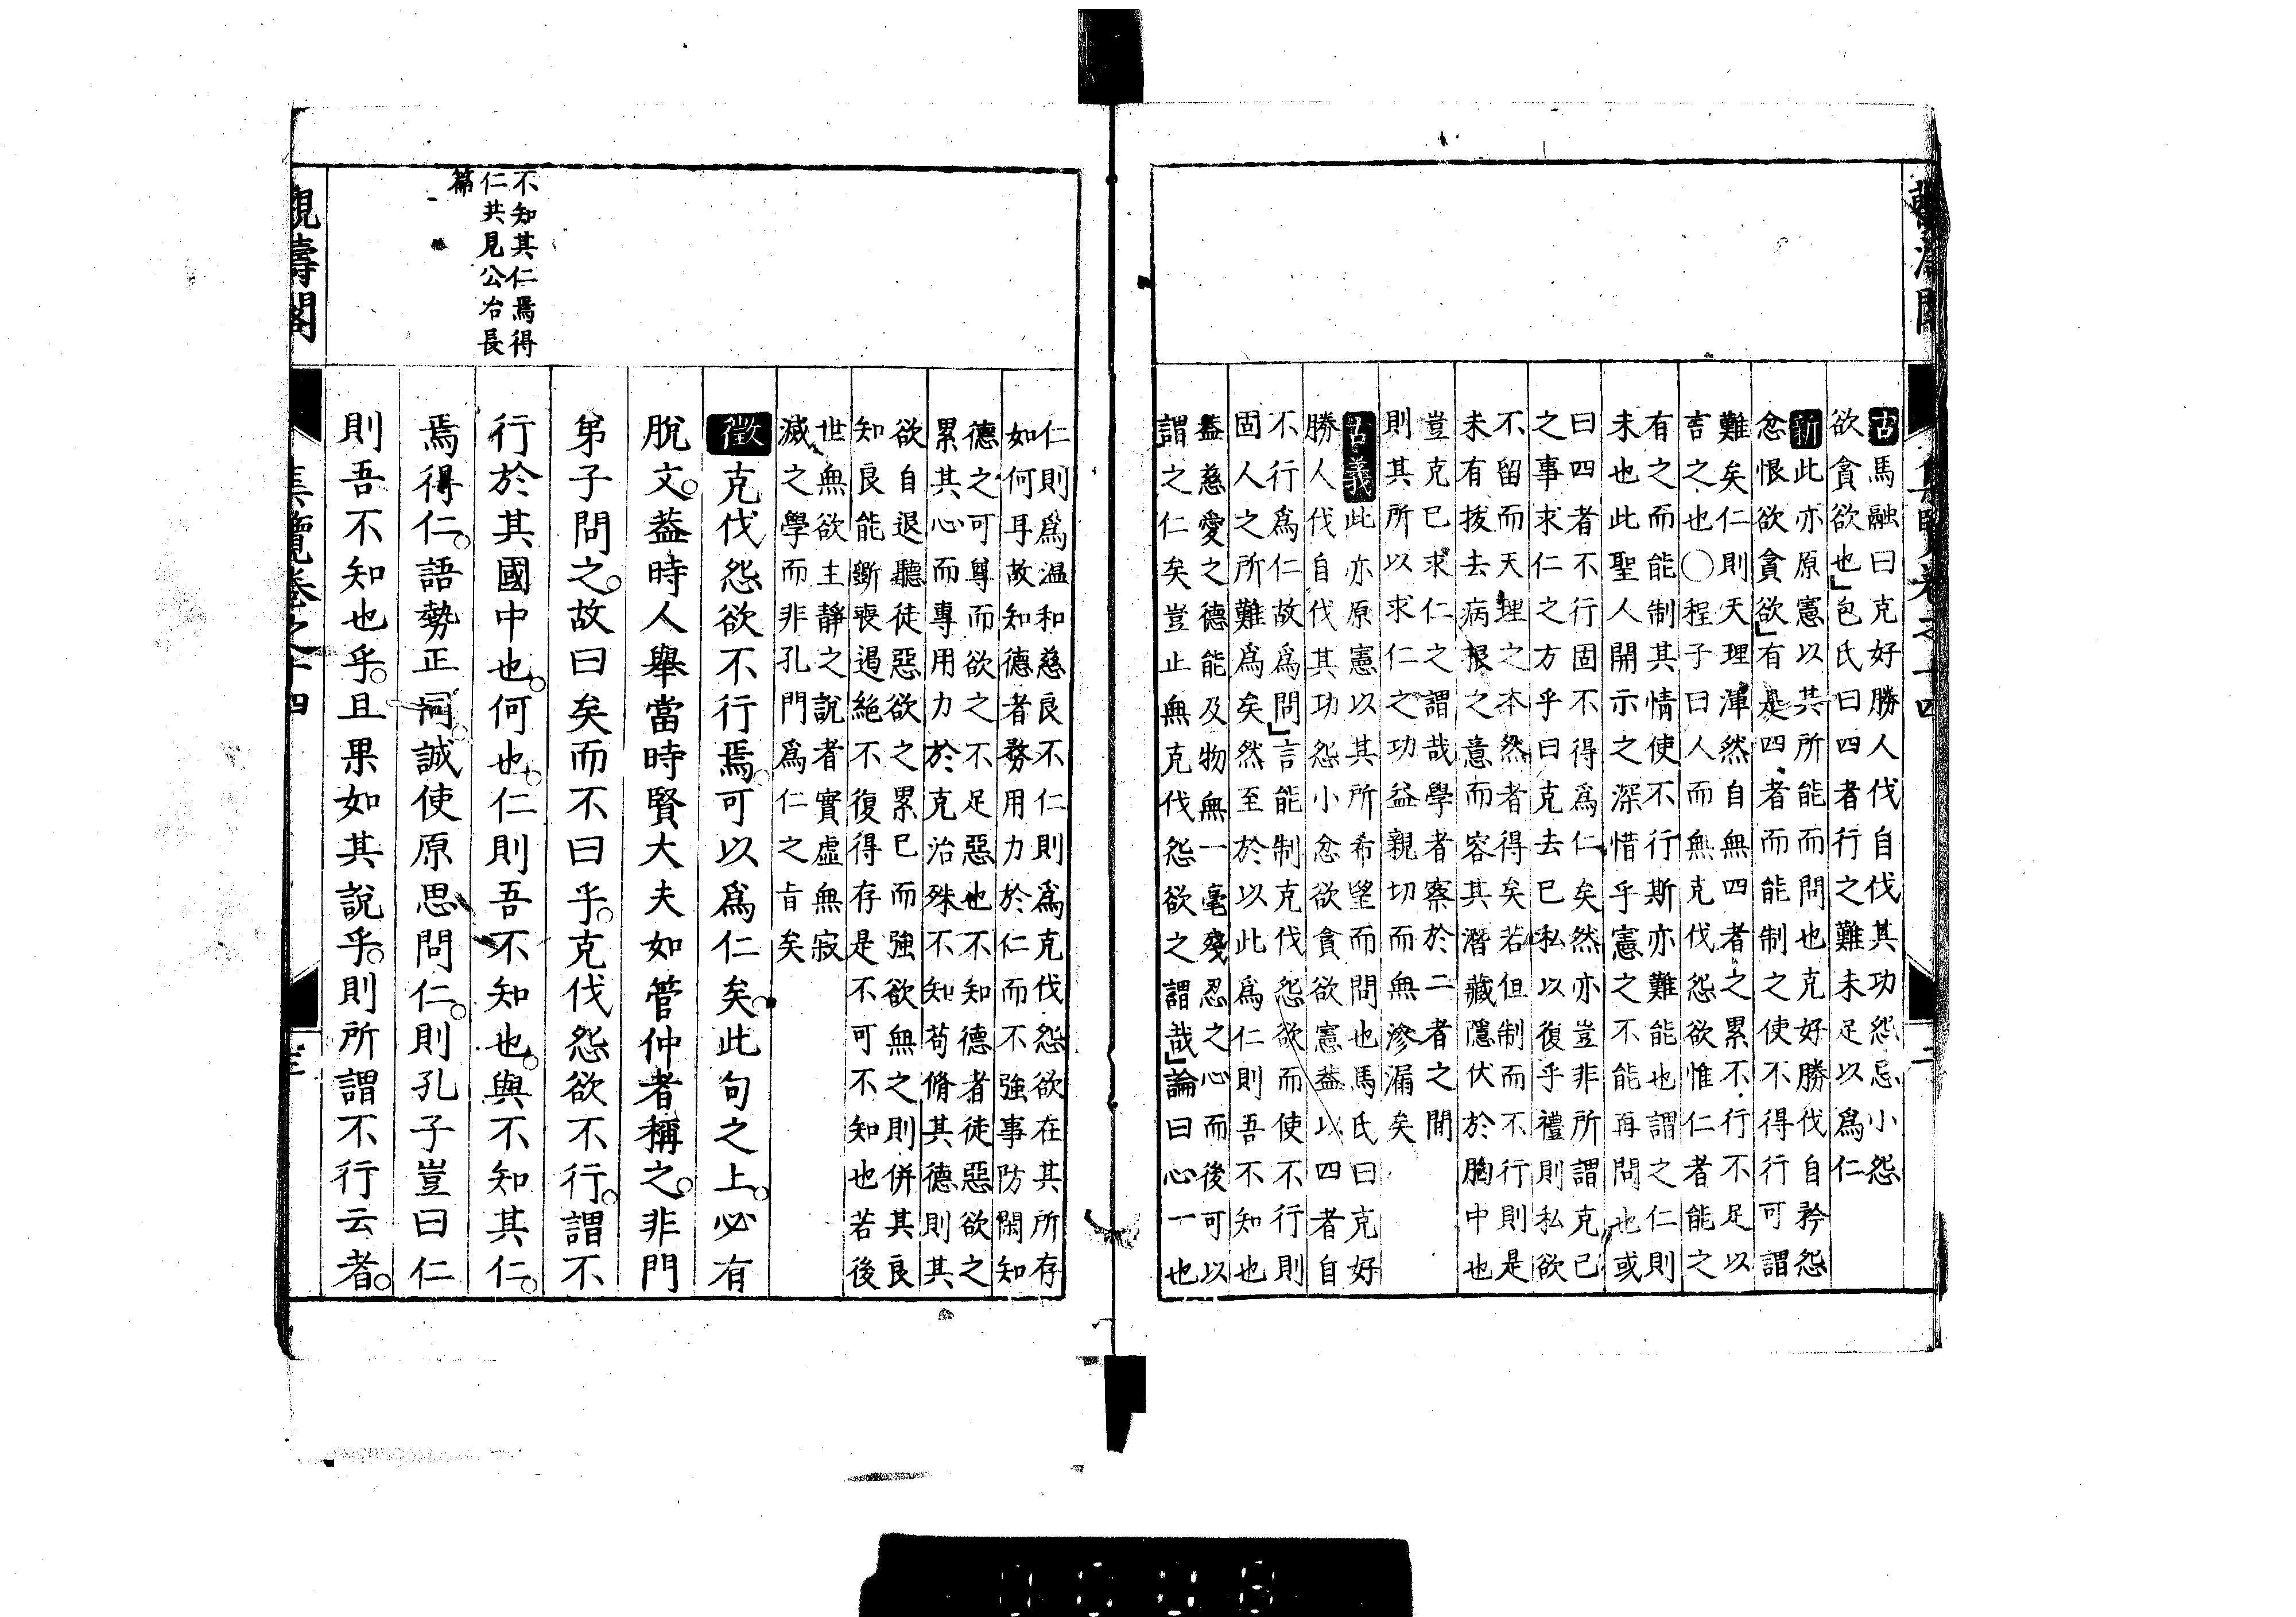 古馬融曰克好勝人伐自伐其功怨忌小怨
欲貪欲也」包氏曰四者行之難未足以爲仁
新此亦原憲以其所能而問也克好勝伐自矜怨
忿恨欲貪欲」有是四者而能制之使不得行可謂
難矣仁則天理渾然自無四者之累不行不足以
言之也〇程子曰人而無克伐怨欲惟仁者能之
有之而能制其情使不行斯亦難能也謂之仁則
未也此聖人開示之深惜乎憲之不能再問也或
曰四者不行固不得爲仁矣然亦豈非所謂克己
之事求仁之方乎曰克去己私以復乎禮則私欲
不留而天理之本然者得矣若但制而不行則是
未有拔去病根之意而容其潛藏隱伏於胸中也
豈克己求仁之謂哉學者察於二者之間
則其所以求仁之功益親切而無滲漏矣
古義此亦原憲以其所希望而問也馬氏曰克好
勝人伐自伐其功怨小忿欲貪欲憲蓋以四者自
不行爲仁故爲問」言能制克伐怨欲而使不行則
固人之所難爲矣然至於以此爲仁則吾不知也
蓋慈愛之德能及物無一毫殘忍之心而後可以
謂之仁矣豈止無克伐怨欲之謂哉」論曰心一也
仁則爲温和慈良不仁則爲克伐怨欲在其所存
如何耳故知德者務用力於仁而不強事防閑知
德之可尊而欲之不足惡也不知德者徒惡欲之
累其心而專用力於克治殊不知苟脩其德則其
欲自退聽徒惡欲之累己而強欲無之則併其良
知良能斲喪遏絶不復得存是不可不知也若後
世無欲主靜之說者實虛無寂
滅之學而非孔門爲仁之旨矣
徵克伐怨欲不行焉可以爲仁矣此句之上必有
脫文蓋時人舉當時賢大夫如管仲者稱之非門
弟子問之故曰矣而不曰乎克伐怨欲不行謂不
行於其國中也何也仁則吾不知也與不知其仁
焉得仁語勢正同誠使原思問仁則孔子豈曰仁
則吾不知也乎且果如其說乎則所謂不行云者
不知其仁焉得
仁共見公冶長
篇
觀濤閣
集覽卷之十四
三